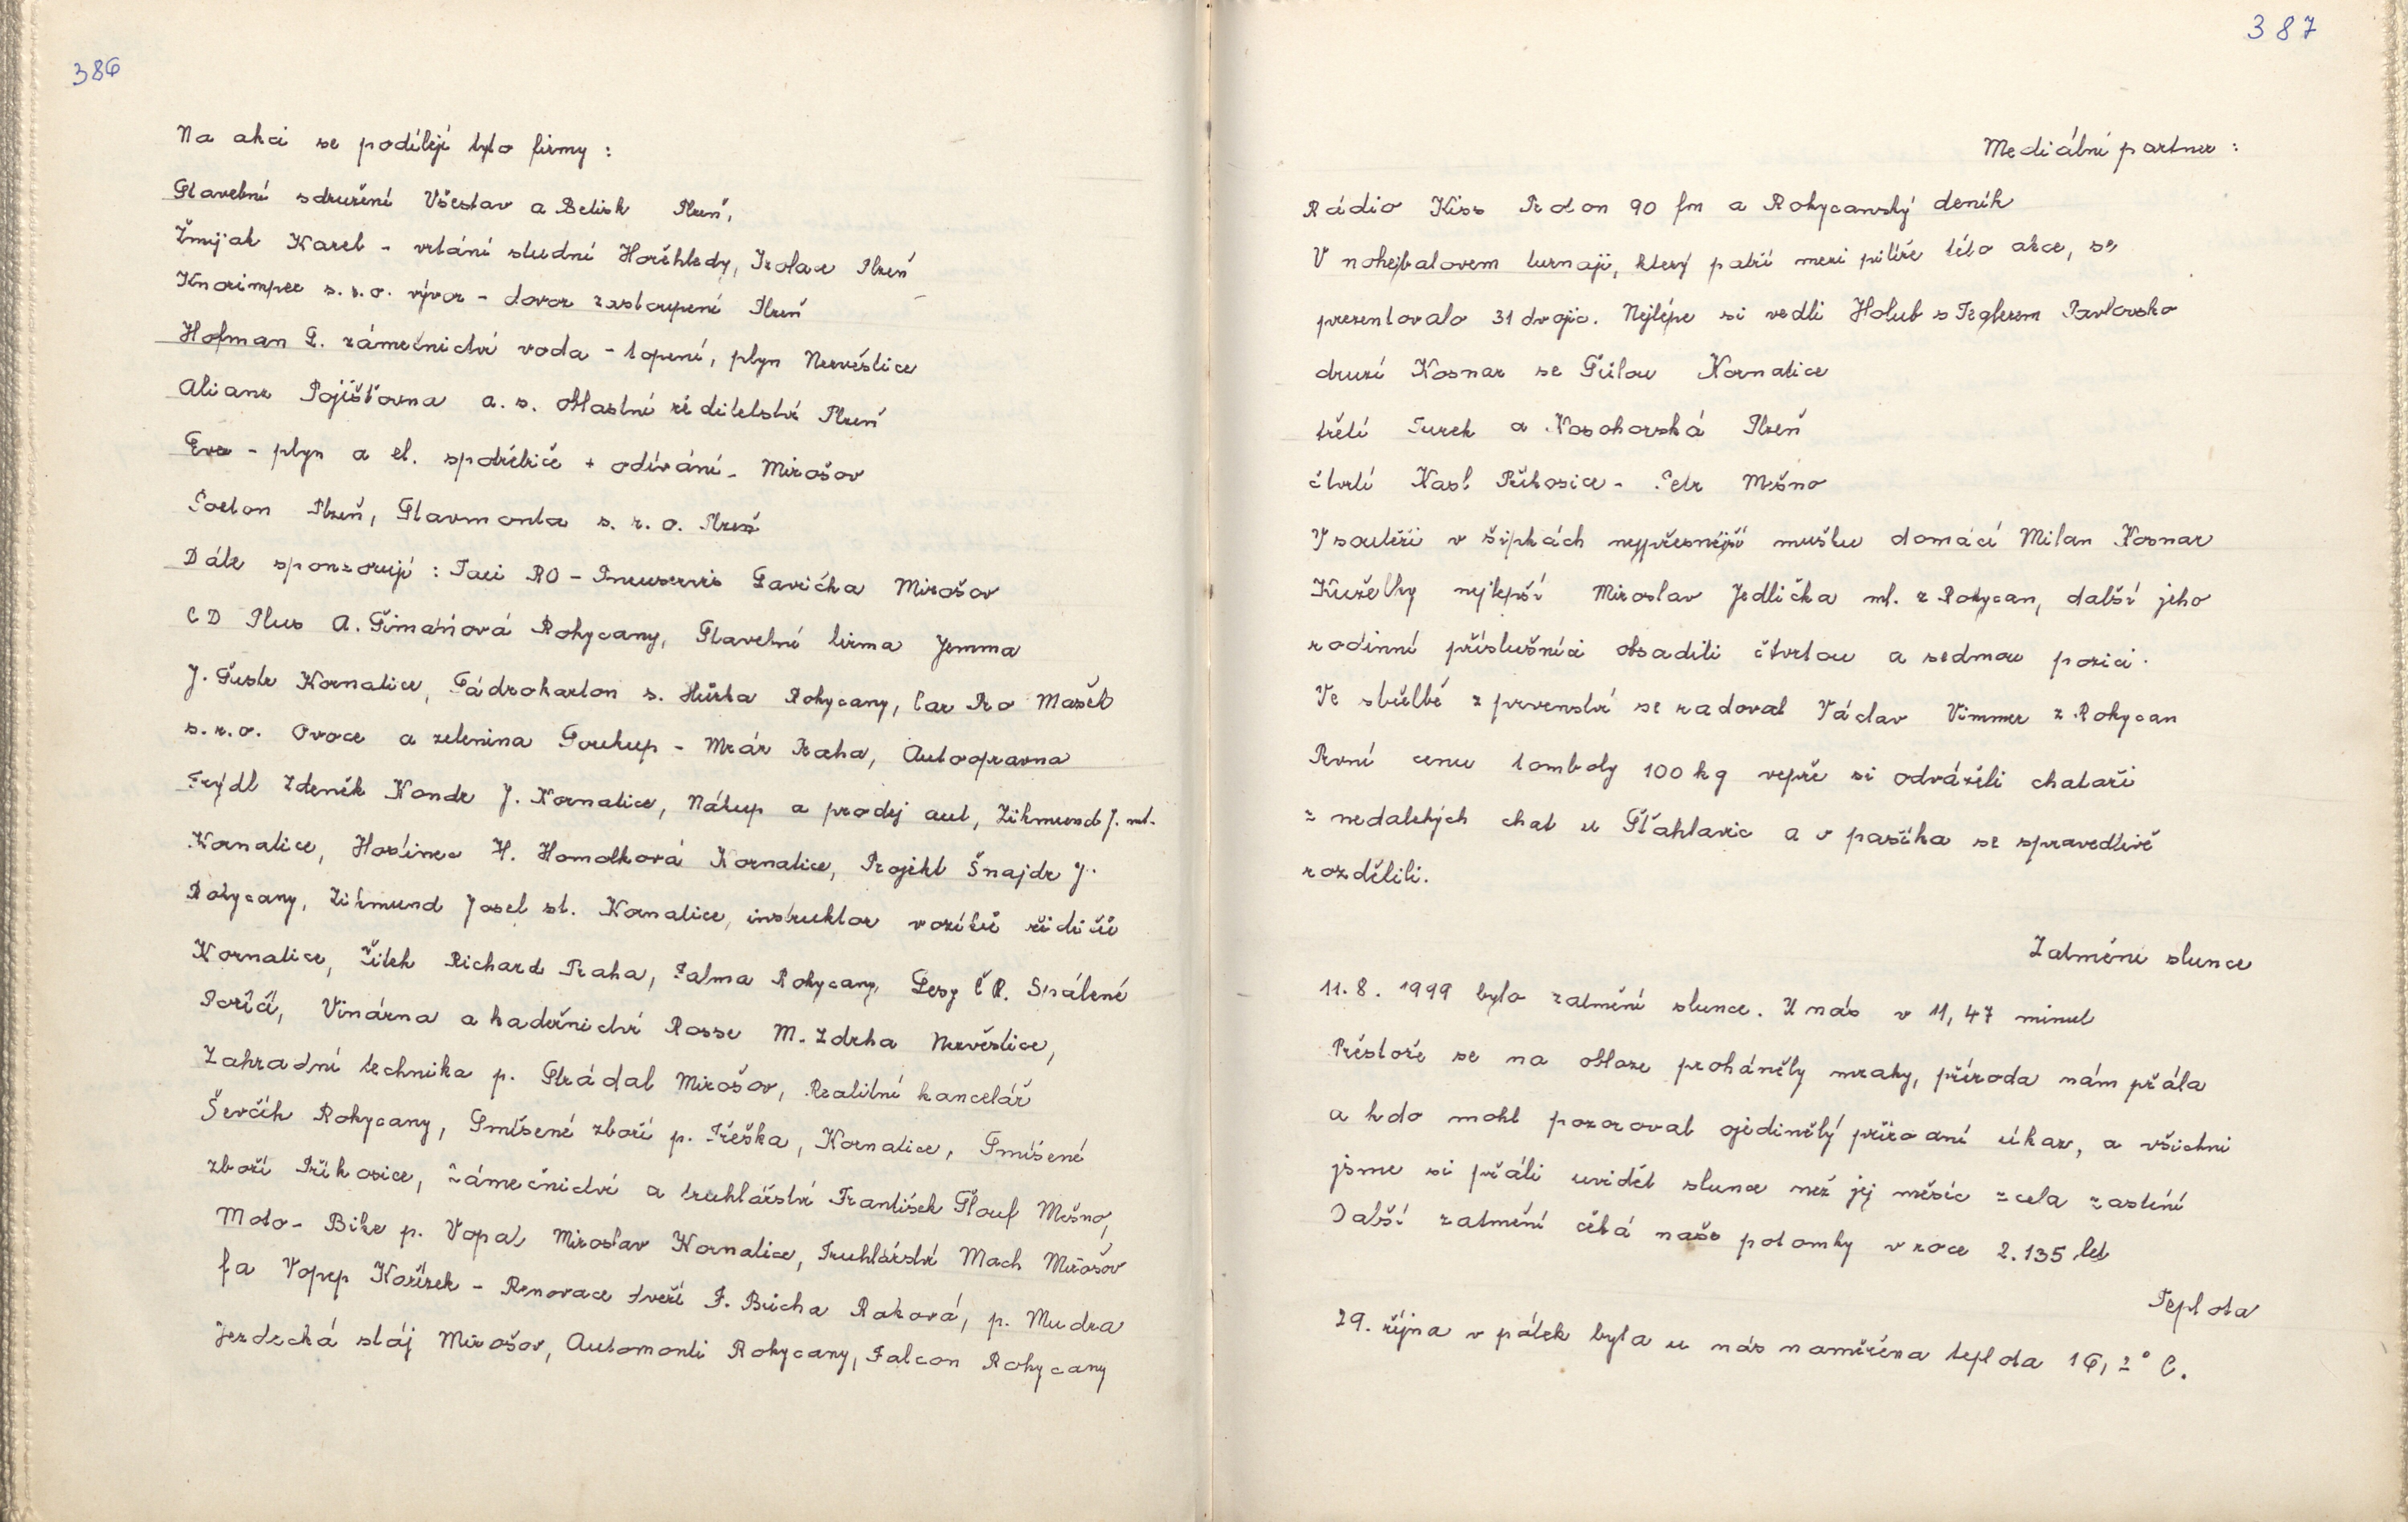 386
Na akci se podílejí tyto firmy :
Stavební sdružení Všestav a Betisk Plzeň,
Žmijak Karel - vrtání studní Hořehledy, Izolace Plzeň
Knorimpex s. r. o. vývoz - dovoz zastoupení Plzeň
Hofman L. zámečnictví voda - topení, plyn Nezvěstice
Alianz Pojišťovna a. s. oblastní ředitelství Plzeň
Eva - plyn a el. spotřebiče + odívání - Mirošov
Plzeň, Stavmonta s. r. o. Plzeň
Dále sponzorují : Taxi RO - Pneuservis Lavička Mirošov
CD Plus A. Šimáňová Rokycany, Stavební firma Jemma
J. Šustr Kornatice, Sádrokarton s. Hůrka Rokycany, Car Ro Mašek
s. r. o. Ovoce a zelenina Soukup - Mráz Praha, Autoopravna
Frýdl Zdeněk Kondr J. Kornatice, Nákup a prodej aut, Zikmund J. ml.
Kornatice, Hostinec H. Homolková Kornatice, Projekt Šnajdr J.
Rokycany, Zikmund Josef st. Kornatice, instruktor vozíků řidičů
Kornatice, Žitek Richard Praha, Falma Rokycany, Lesy ČR. Spálené
Poříčí, Vinárna a kadeřnictví Rosse M. Zdrha Nezvěstice,
Zahradní technika p. Strádal Mirošov, Realitní kancelář
Ševčík Rokycany, Smíšené zboží p. Třeška, Kornatice, Smíšené
zboží Příkosice, zámečnictví a truhlářství František Šlouf Mešno,
Moto - Bike p. Vopat Miroslav Kornatice, Truhlářství Mach Mirošov
fa Vopep Kořízek - Renovace dveří F. Bůcha Raková, p. Mudra
Jezdecká stáj Mirošov, Automonti Rokycany, Falcon Rokycany
387
Mediální partner :
Rádio Kiss Proton 90 fm a Rokycanský deník
V nohejbalovem turnaji, který patří mezi pilíře této akce, se
prezentovalo 31 dvojic. Nejlépe si vedli Holub s Péglerem Pavlovsko
druzí Kosnar se Šůlou Kornatice
třetí Turek a Nosohorská Plzeň
čtvrtí Kasl Příkosice - Petr Mešno
V soutěži v šipkách nejpřesnější mušku domácí Milan Kosnar
Kuželky nejlepší Miroslav Jedlička ml. z Rokycan, další jeho
rodinní příslušníci obsadili čtvrtou a sedmou pozici.
Ve střelbě z prvenství se radoval Václav Vimmer z Rokycan
První cenu tomboly 100 kg vepře si odváželi chataři
z nedalekých chat u Šťáhlavic a v pasíka se spravedlivě
rozdělili.
Zatmění slunce
11. 8. 1999 bylo zatmění slunce. U nás v 11,47 minut
Přestože se na obloze proháněly mraky, příroda nám přála
a kdo mohl pozoroval ojedinělý přírodní úkaz, a všichni
jsme si přáli uvidět slunce než jej měsíc zcela zastíní
Další zatmění čeká naše potomky v roce 2.135 let
Teplota
29. října v pátek byla u nás naměřena teplota 16,2° C.